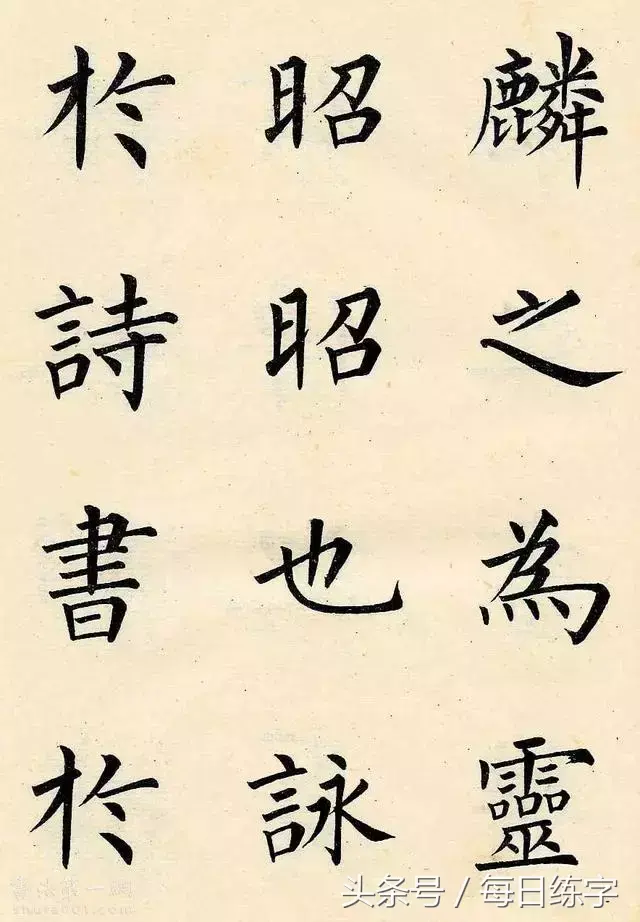 麟之為靈
昭昭也詠
於詩書於
头条号 / 每日练字